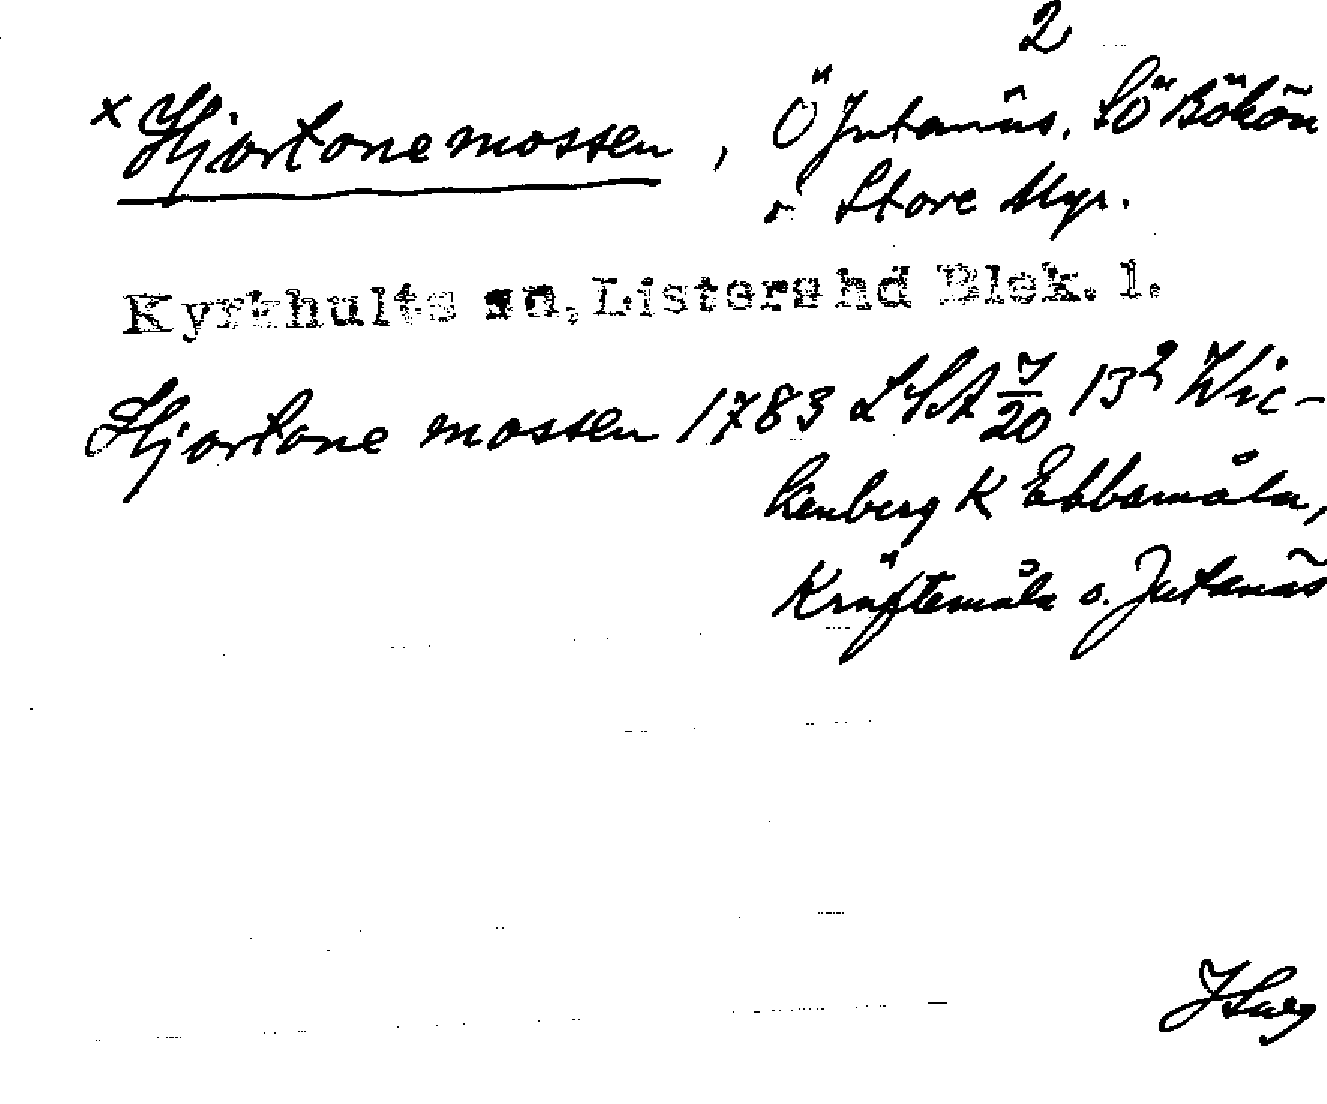 2
x Hjortonemossen, Ö Jutanäs, SÖ Bökön
o. Store Myr.
Kyrkhults sn, Listers hd Blek. l.
Hjortone mossen 1783 LSA 7/20 13² Wic-
kenberg K Ebbamåla,
Kräftemåla o. Jutanäs